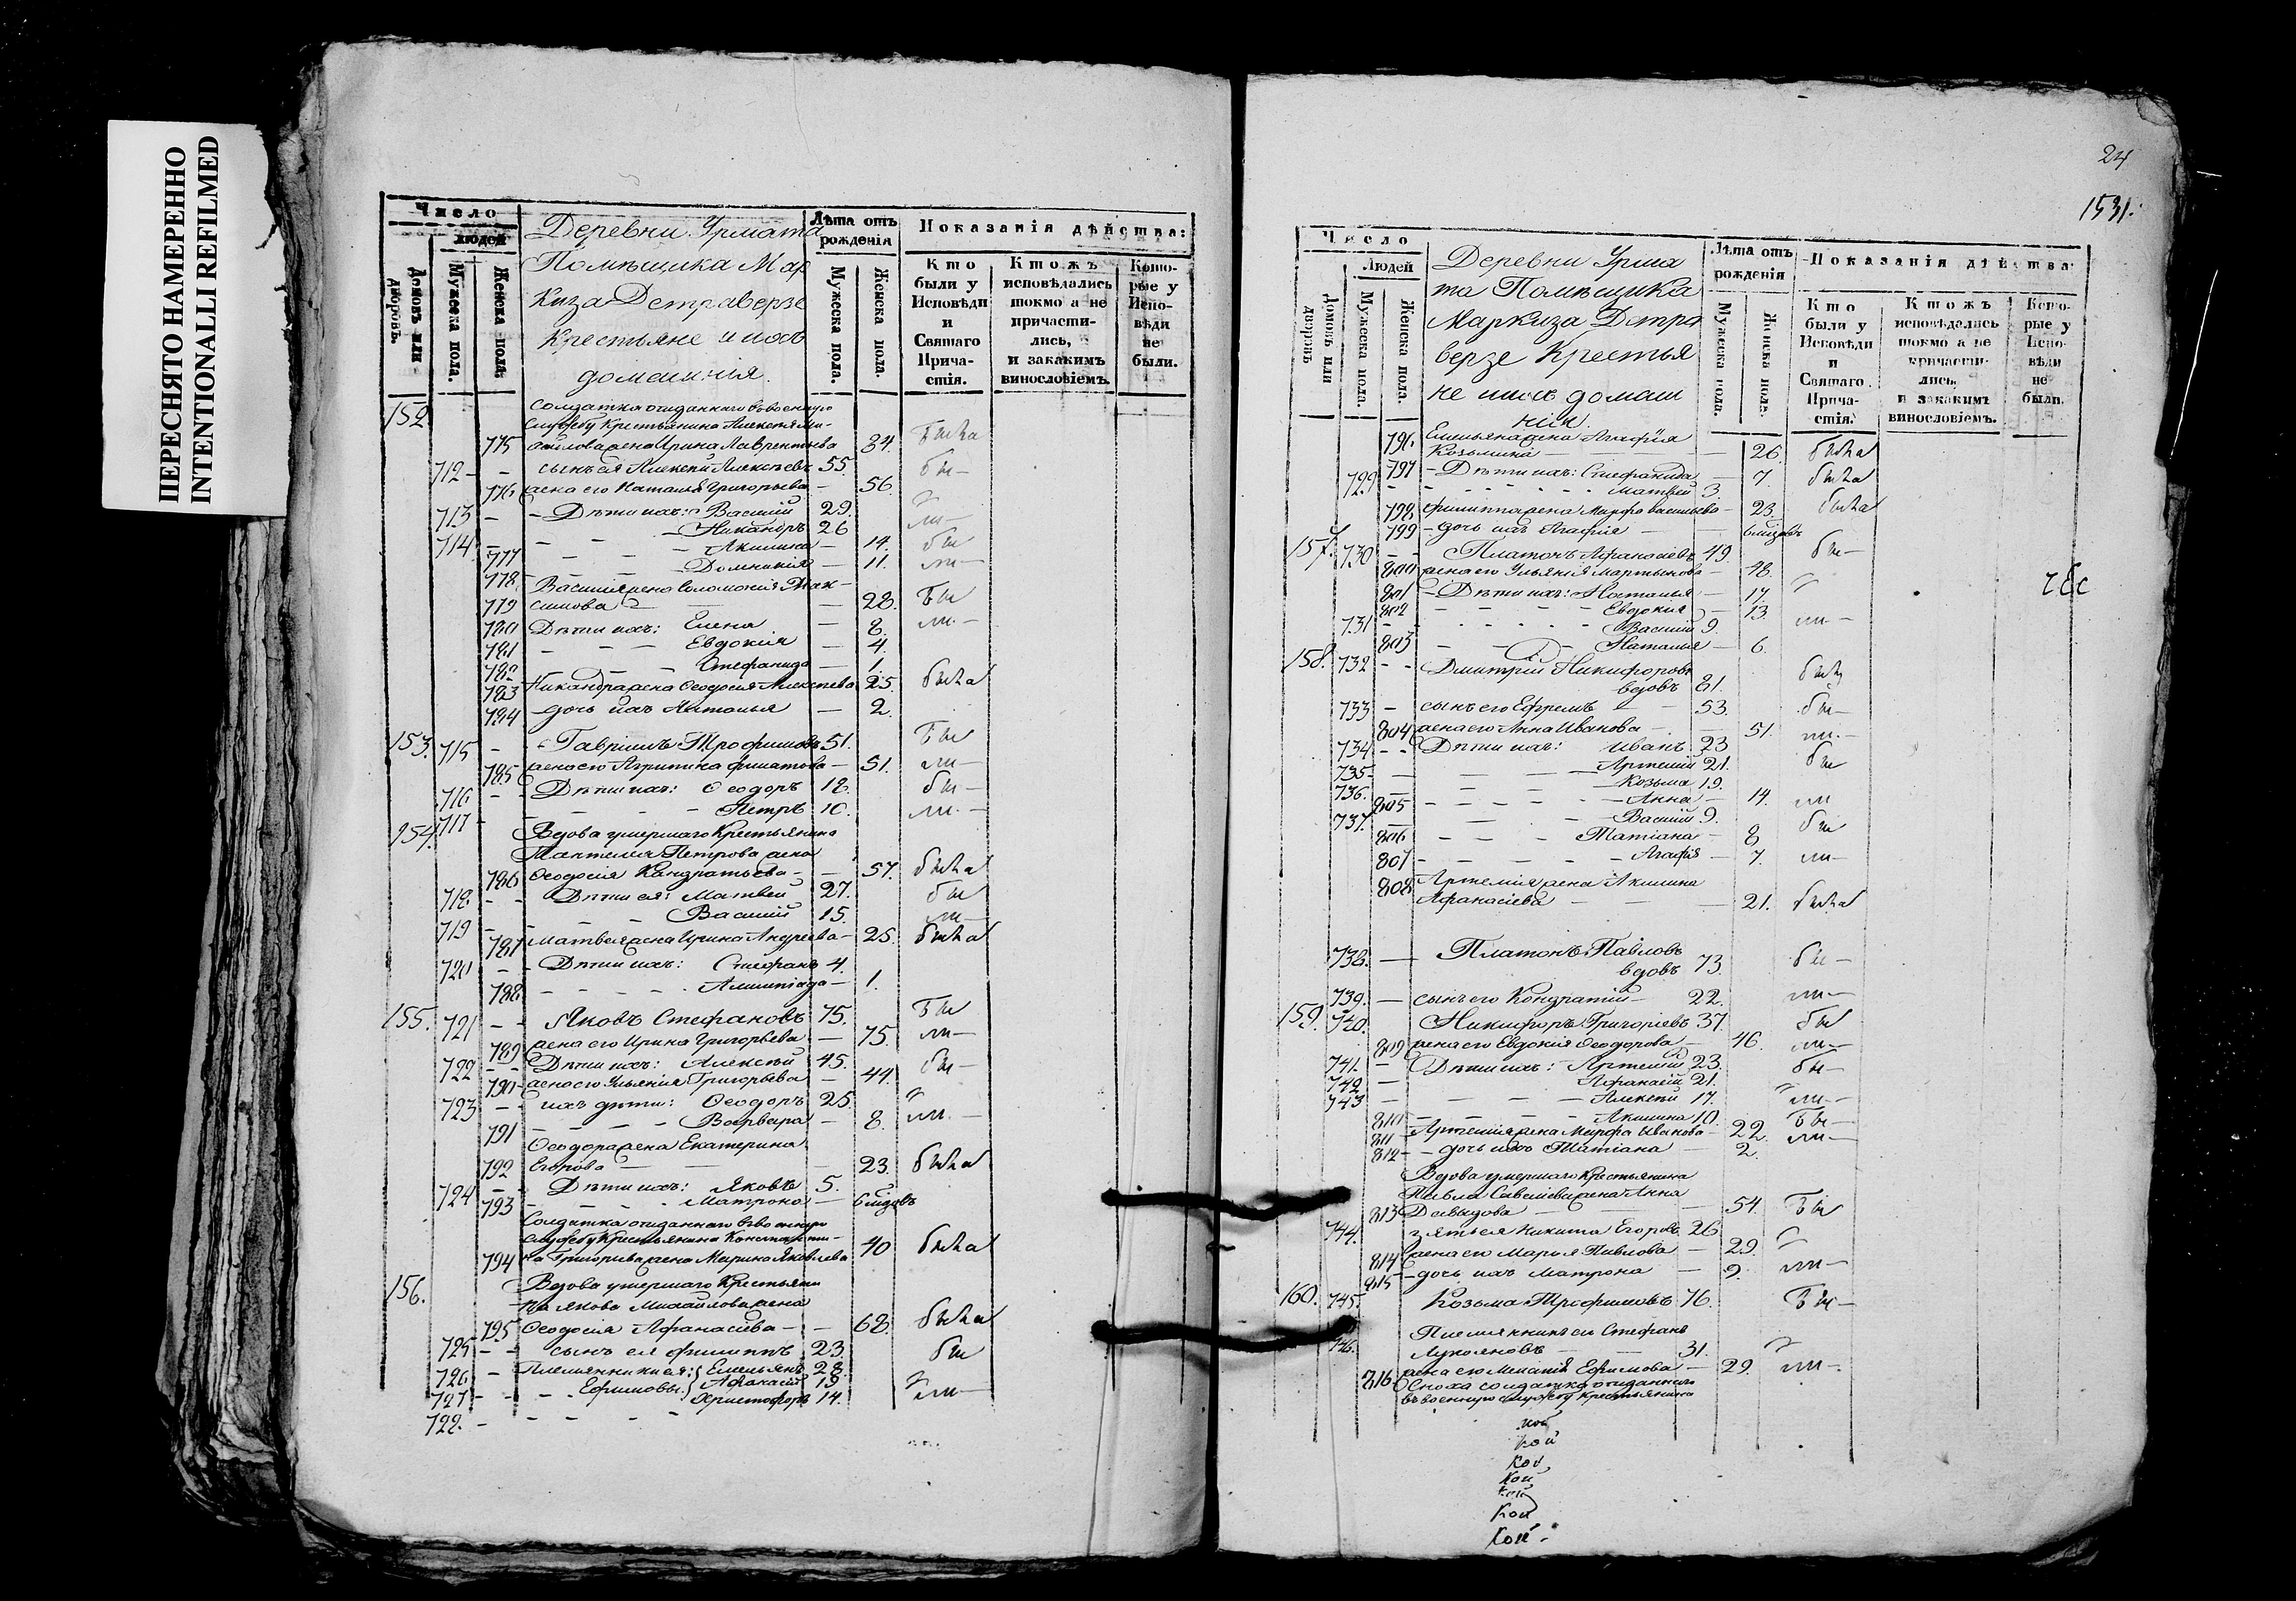 ПЕРЕСНЯТО НАМЕРЕННО
INTENTIONALLI REFILMED
Число
людей
Домовъ или дворовъ.
Мужеска пола.
Женска пола.
Деревни Урмата
Помѣщика Мар
киза Детраверзе
Крестьяне и ихъ
домашнія.
Лѣта отъ рожденія
Мужеска пола.
Женска пола.
Показанія дѣйства:
Кто были у Исповѣди и Святаго Причастія.
Ктожъ исповѣдались токмо а не причастились, и закакимъ винословіемъ.
Которые у Исповѣди не были.
152
Солдатка отданнаго въ военную
службу Крестьянина Алексея Ми-
775 хайлова жена Ирина Лаврентьева 84. была
712 - - сынъ ея Алексей Алексеевъ 55. бы-
776 жена его Наталья Григорьева - 56.
713 - - Дѣти ихъ: Василий 29. ли-
714 - - Никаноръ 26 бы
777 - Акилина - 14. ли-
778 - Домникия - 11.
Василия жена Соломония Мак-
779 симова - 28. Бы
780 Дѣти ихъ: Елена - 8. ли-
781 - Евдокия - 4.
782 - Стефанида - 1.
783 Никандра жена Ѳеодосия Алексеева 25. была
784 дочь ихъ Наталья - 2.
153. 715 - Гаврiилъ Трофимовъ 51. Бы
785 жена его Агрипина Филатова - 51. ли-
716 - - Дѣти ихъ: Ѳеодоръ 18. бы-
717 - Петръ 10. ли-
154. Вдова умершаго Крестьянина
Пантелея Петрова жена
786 Ѳеодосия Кандратьева - 57. была
718 - - Дѣти ея: Матвей 27. бы
719 - Василий 15. ли-
787 Матвея жена Ирина Андреева - 25. была
720 - - Дѣти ихъ: Стефанъ 4.
788 - - 1.
155. 721 - - Яковъ Стефановъ 75. Бы
789 жена его Ирина Григорьева - 75. ли-
722 - - Дѣти ихъ: Алексей 45. бы-
790 - жена его Ульяния Григорьева - 44.
723 - - ихъ дѣти: Ѳеодоръ 25.
791 - Варвара - 8. ли-
Ѳеодора жена Екатерина
792 Егорова - 23. была
724 - - Дѣти ихъ: Яковъ 5.
793 - Матрона - 6 мѣсяцъ
Солдатка отданнаго въ военную
службу Крестьянина Константи-
794 на Григорьева жена Марина Яковлева 40 была
156. Вдова умершаго Крестьяни
на Якова Михайлова жена
795 Ѳеодосия Афанасиева - 68. была
725 - - сынъ ея Филиппъ 23. бы
726 - Племянники ея: Емельянъ 28.
727 - Ефимовы: Афанасий 19 ли-
728. - Христофоръ 14.
24
1531.
Число
Людей
Домовъ или дворовъ
Мужеска пола.
Женска пола.
Деревни Урма
та Помѣщика
Маркиза Детра
верзе Крестья
не ихъ домаш
нiи.
Лѣта отъ рожденія
Мужеска пола.
Женска пола.
Показанія дѣйства
Кто были у Исповѣди и Святаго Причастія.
Ктожъ исповѣдались токмо а не причастились, и закакимъ винословіемъ.
Которые у Исповѣди не были.
796. Емельяна жена Агафия
Козьмина - 26. была
797 - Дѣти ихъ: Стефанида - 7. была
729 - Матвей 3.
798 Филиппа жена Марфа Васильева - 23. была
799 - дочь ихъ Агафия - 6 мѣсяцъ
157. 730 - - Платонъ Афанасиевъ 49. бы-
800 жена его Ульяния Мартынова - 48.
801 - Дѣти ихъ: Наталья - 17.
802 - Евдокия - 13.
731 - Василий 9. ли-
803 - Наталья - 6.
158. 732 - - Дмитрий Никифоровъ
вдовъ 81. былъ
733 - сынъ его Ефремъ 53. бы-
804 жена его Анна Иванова - 51. ли-
734 - - Дѣти ихъ: Иванъ 23
735 - Артемий 21. бы
736. - Козьма 19.
805 - Анна - 14. ли
737. - Василий 9.
806 - Татиана - 8 бы
807 - Агафия - 7. ли-
808 Артемия жена Акилина
Афанасиева - 21. была
738. - Платонъ Павловъ
вдовъ 73. бы-
739. - сынъ его Кондратий - 22. ли-
159. 740. Никифоръ Григориевъ 37. бы
809 жена его Евдокия Ѳеодорова - 46. ли-
741. - Дѣти ихъ: Артемий 23. бы-
742 - Афанасий 21.
743 - Алексей 17. ли-
810 - Акилина 10.
811 - Артемия жена Марфа Иванова - 22. Бы-
812 - - дочь ихъ Татиана - 2. ли-
Вдова умершаго Крестьянина
Павла Савельева жена Анна
813 Давыдова - 54. Бы
744. зять ея Никита Егоровъ 26
814 жена его Марья Павлова - 29.
815 - дочь ихъ Матрона - 9. ли-
160. 745. Козьма Трофимовъ 76. Бы-
746. Племянникъ ея Стефанъ
Лукояновъ - 31.
816 жена его Ефимова - 29. ли-
Сноха солдатка отданнаго
въ военную службу Крестьянина
Кой
Кой
Кой
Кой
Кой
Кой
Кой.